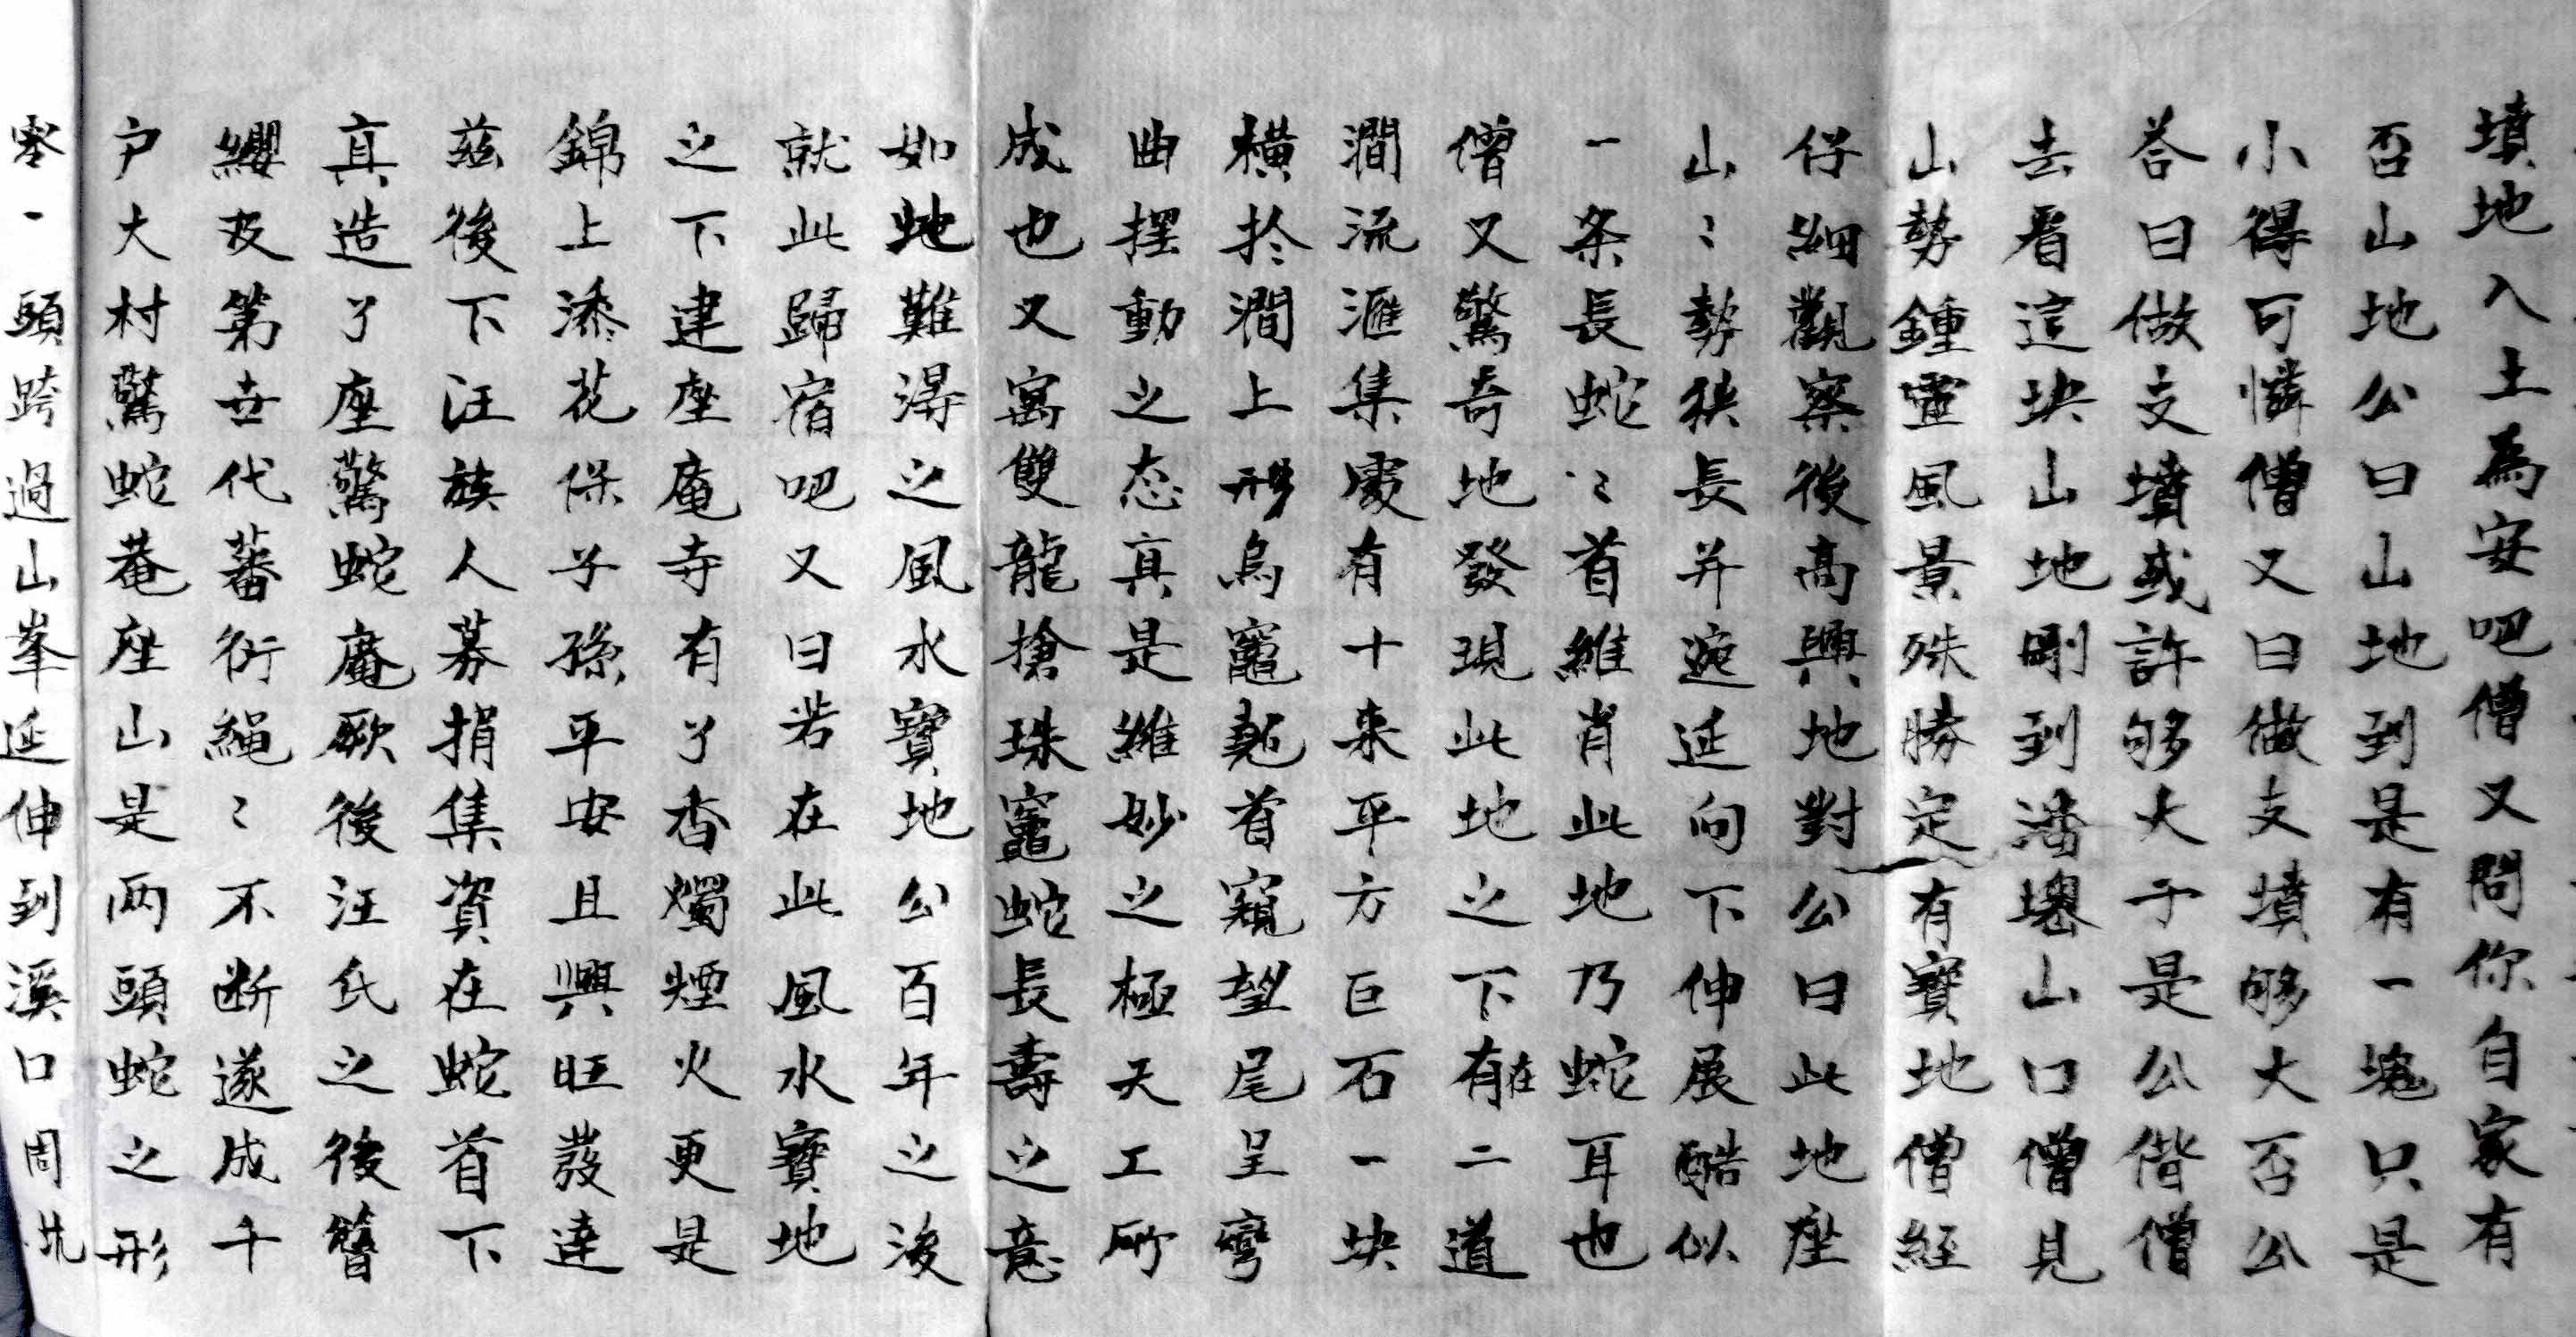 墳地入土為安吧僧又問你自家有
否山地公曰山地到是有一塊只是
小得可憐僧又曰做支墳够大否公
荅曰做支墳或許够大于是公偕僧
去看這块山地剛到潘塢山口僧見
山勢鍾靈風景殊勝定有寶地僧經
仔細觀察後高興地對公曰此地座
山〻勢狹長并逶延向下伸展酷似
一条長蛇〻首維肖此地乃蛇耳也
僧又驚奇地發現此地之下有在二道
澗流滙集處有十来平方巨石一块
横扵澗上形烏龜翘首窺望尾呈彎
曲摆動之态真是維妙之極天工所
成也又寓雙龍搶珠龜蛇長壽之意
如虵難淂之風水寶地公百年之後
就此歸宿吧又曰若在此風水寶地
之下建座庵寺有了香燭煙火更是
錦上添花保子孫平安且興旺發達
茲後下汪族人募捐集資在蛇首下
真造了座驚蛇庵厥後汪氏之後簪
纓及第世代蕃衍䋲〻不断遂成千
户大村驚蛇菴座山是两頭蛇之形
一頭跨過山峯延伸到溪口周